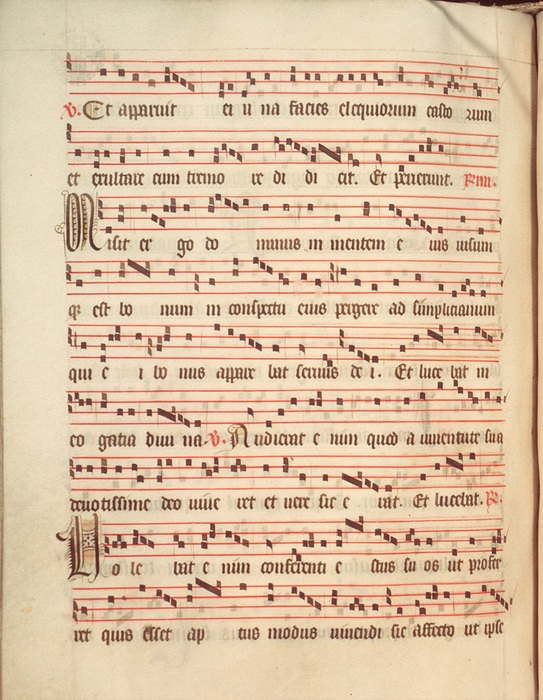 V. Et apparuit ei u na facies eloquiorum casto rum
et exultare cum tremo re di di cit. Et perierunt. R.
Misit er go do minus in mentem e ius uisum
q; est bo num in conspectu eius pergere ad simplicianum
qui e i bo nus appare bat seruus de i. Et luce bat in
eo gratia diui na. V. Audierat e nim quod a iuuentute sua
deuotissime deo uiue ret et uere sic e rat. Et lucebat. R.
Uo le bat e nim conferenti e stus su os ut profer
ret quis esset ap tus modus uiuendi sic affecto ut ipse